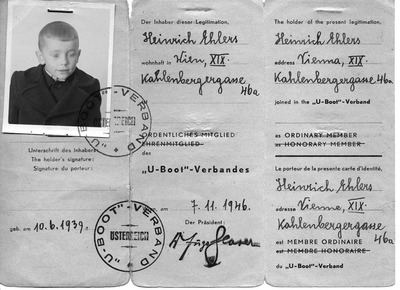 "U-BOOT"-VERBAND
ÖSTERREICH
Unterschrift des Inhabers:
The holder's signature:
Signature du porteur:
geb. am 10.6.1939.
"U-BOOT"-VERBAND
ÖSTERREICH
Der Inhaber dieser Legitimation,
Heinrich Ehlers
wohnhaft in Wien, XIX.
Kahlenbergergasse 46a
ORDENTLICHES MITGLIED
EHRENMITGLIED
des
„U-Boot"-Verbandes
am 7. 11. 1946.
Der Präsident:
The holder of the present legitimation,
Heinrich Ehlers
address Vienna, XIX.
Kahlenbergergasse 46a.
joined in the „U-Boot"-Verband
as ORDINARY MEMBER
as HONORARY MEMBER
Le porteur de la presente carte d'identité,
Heinrich Ehlers
adresse Vienne, XIX.
Kahlenbergergasse 46a
est MEMBRE ORDINAIRE
est MEMBRE HONORAIRE
du „U-Boot"-Verband